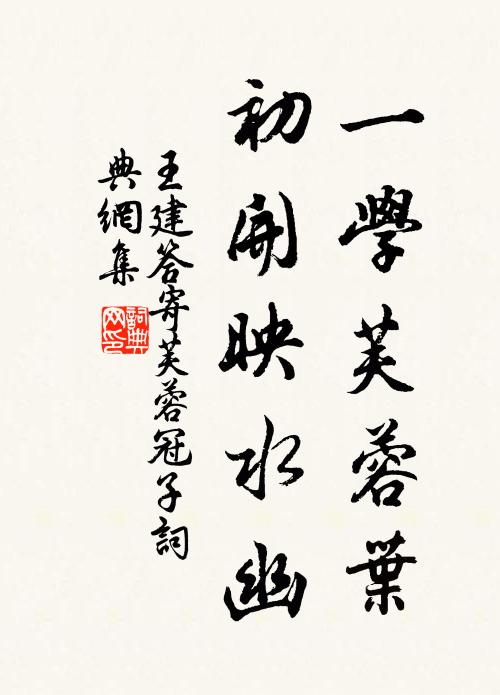 一學芙蓉葉
初開映水幽
王建答寄芙蓉冠子詞
典網集
詞典网印